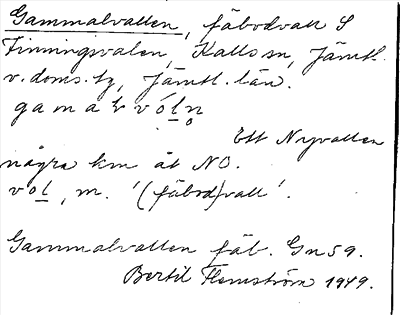 Gammalvallen, fäbodvall S
Finningsvalen, Kalls sn, Jämtl.
v. doms. tg, Jämtl. län.
gamaɫvóln̥
Ett Nyvallen
några km åt NO.
vol, m. '(fäbod)vall'.
Gammalvallen fäb. Gn 59.
Bertil Flemström 1949.